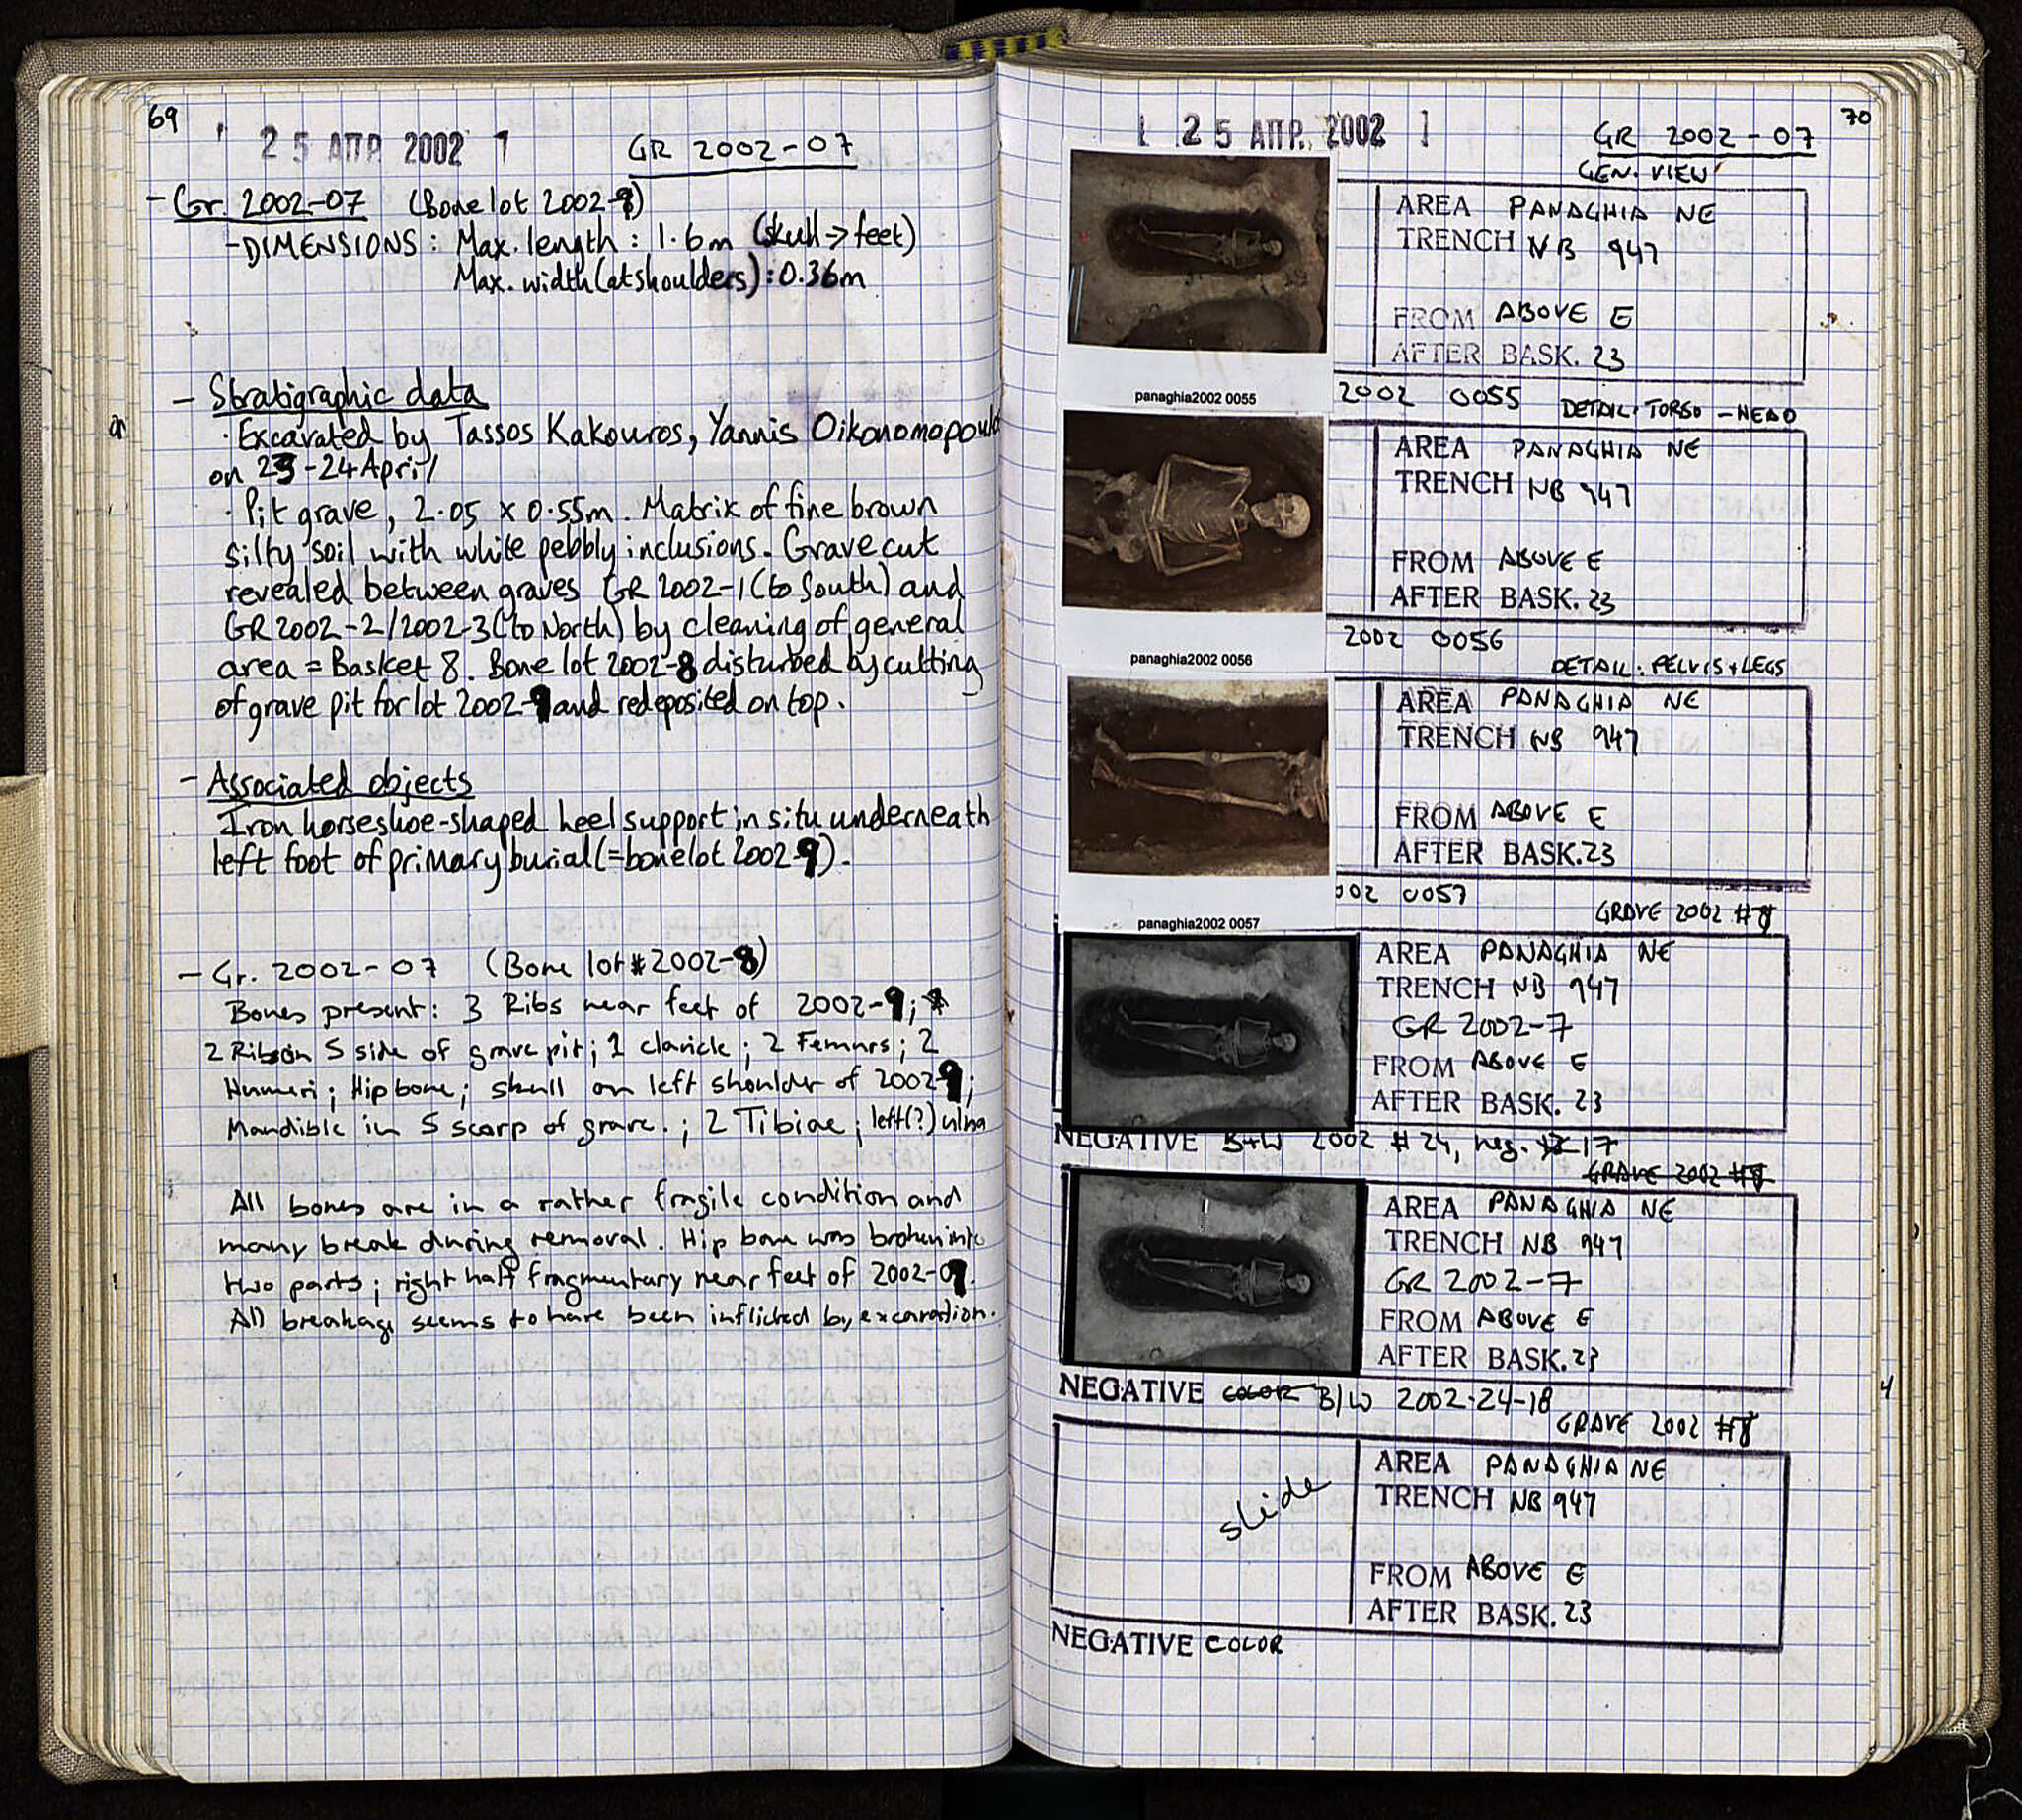 69
25 ΑΠΡ. 2002
GR 2002-07
- Gr. 2002-07 (Bone lot 2002-9)
- DIMENSIONS: Max. length: 1.6m (skull → feet)
Max. width (at shoulders): 0.36m
- Stratigraphic data
· Excavated by Tassos Kakouros, Yannis Oikonomopoul
on 23-24 April
· Pit grave, 2.05 x 0.55m. Matrix of fine brown
silty soil with white pebbly inclusions. Grave cut
revealed between graves GR 2002-1 (to South) and
GR 2002-2/2002-3 (to North) by cleaning of general
area = Basket 8. Bone lot 2002-8 disturbed by cutting
of grave pit for lot 2002-9 and redeposited on top.
- Associated objects
Iron horseshoe-shaped heel support in situ underneath
left foot of primary burial (= bone lot 2002-9).
- Gr. 2002-07 (Bone lot # 2002-8)
Bones present: 3 Ribs near feet of 2002-9;
2 Ribs on S side of grave pit; 1 clavicle; 2 Femurs; 2
Humeri; Hip bone; skull on left shoulder of 2002-9;
Mandible in S scarp of grave.; 2 Tibiae; left(?) ulna
All bones are in a rather fragile condition and
many break during removal. Hip bone was broken into
two parts; right half fragmentary near feet of 2002-09.
All breakage seems to have been inflicted by excavation.
70
[ 25 ΑΠΡ. 2002 ]
GR 2002-07
GEN. VIEW
AREA PANAGHIA NE
TRENCH NB 947
FROM ABOVE E
AFTER BASK. 23
panaghia2002 0055
2002 0055
DETAIL: TORSO-HEAD
AREA PANAGHIA NE
TRENCH NB 947
FROM ABOVE E
AFTER BASK. 23
panaghia2002 0056
2002 0056
DETAIL: PELVIS + LEGS
AREA PANAGHIA NE
TRENCH NB 947
FROM ABOVE E
AFTER BASK. 23
panaghia2002 0057
002 0057
GRAVE 2002 #7
AREA PANAGHIA NE
TRENCH NB 947
GR 2002-7
FROM ABOVE E
AFTER BASK. 23
NEGATIVE B+W 2002 #24, neg. 17
GRAVE 2002
AREA PANAGHIA NE
TRENCH NB 947
GR 2002-7
FROM ABOVE E
AFTER BASK. 23
NEGATIVE COLOR B/W 2002-24-18
GRAVE 2002 #7
slide
AREA PANAGHIA NE
TRENCH NB 947
FROM ABOVE E
AFTER BASK. 23
NEGATIVE COLOR